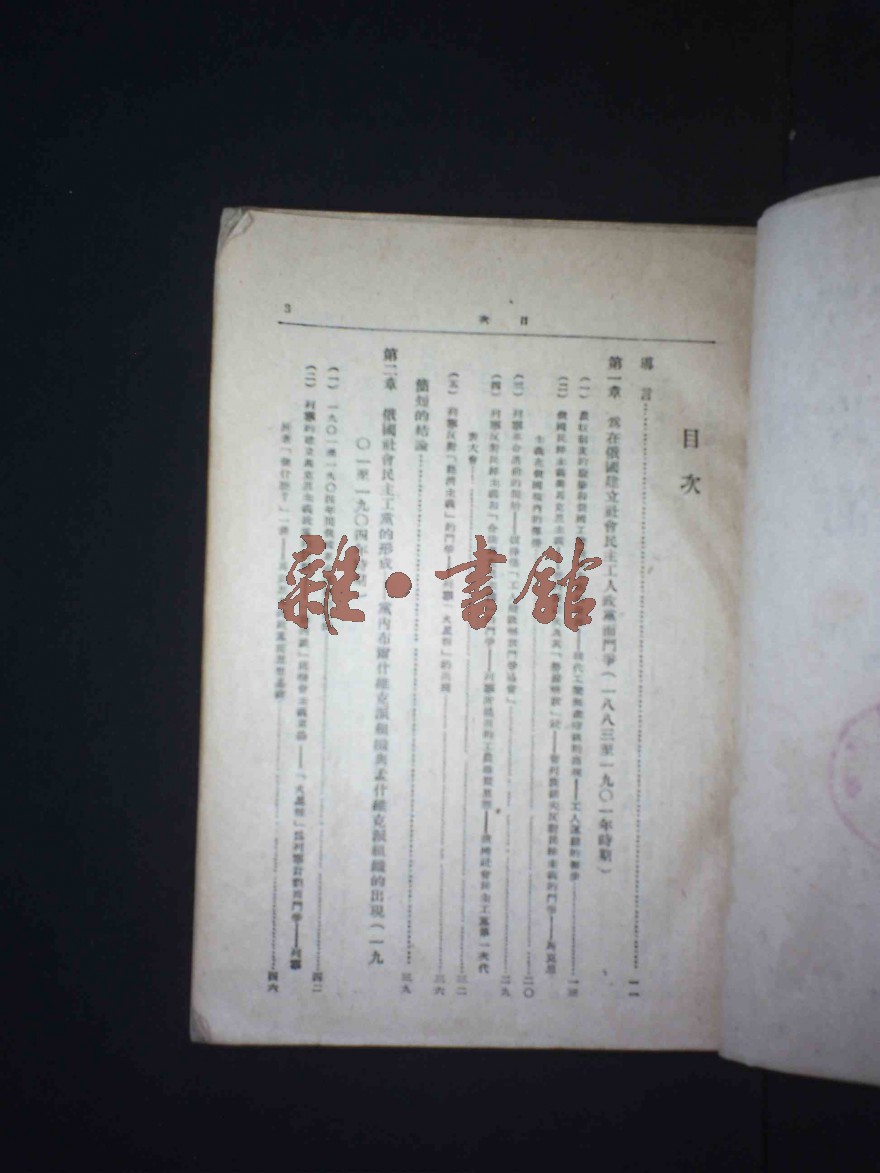 3
目次
目次
導言 一一
第一章 爲在俄國建立社會民主工人政黨而鬥爭(一八八三至一九〇一年時期)
(一) 農奴制度的廢除 現代工業無產階級的出現——工人運動的初步 一三
(二) 俄國民粹主義與馬克思主義 「勞動解放」社——普列漢諾夫反對民粹主義的鬥爭——馬克思
主義在俄國境內的傳佈 二〇
(三) 列寧革命活動的開始 二九
(四) 列寧反對民粹主義和「合法 鬥爭——列寧 工農聯盟思想——俄國社會民主工黨第一次代
表大會 三二
(五) 列寧反對「經濟主義」的鬥爭 「火星報」的出現 三六
簡短的結論 三九
第二章 俄國社會民主工黨的形成 黨內布爾什維克派組織與孟什維克派組織的出現(一九
〇一至一九〇四年時期)
(一) 一九〇一至一九〇四年間 四二
(二) 列寧的建立馬克思主義政黨 「火星報」爲列寧計劃而鬥爭——列寧
所著「做什麼?」一書 四六
雜·書館